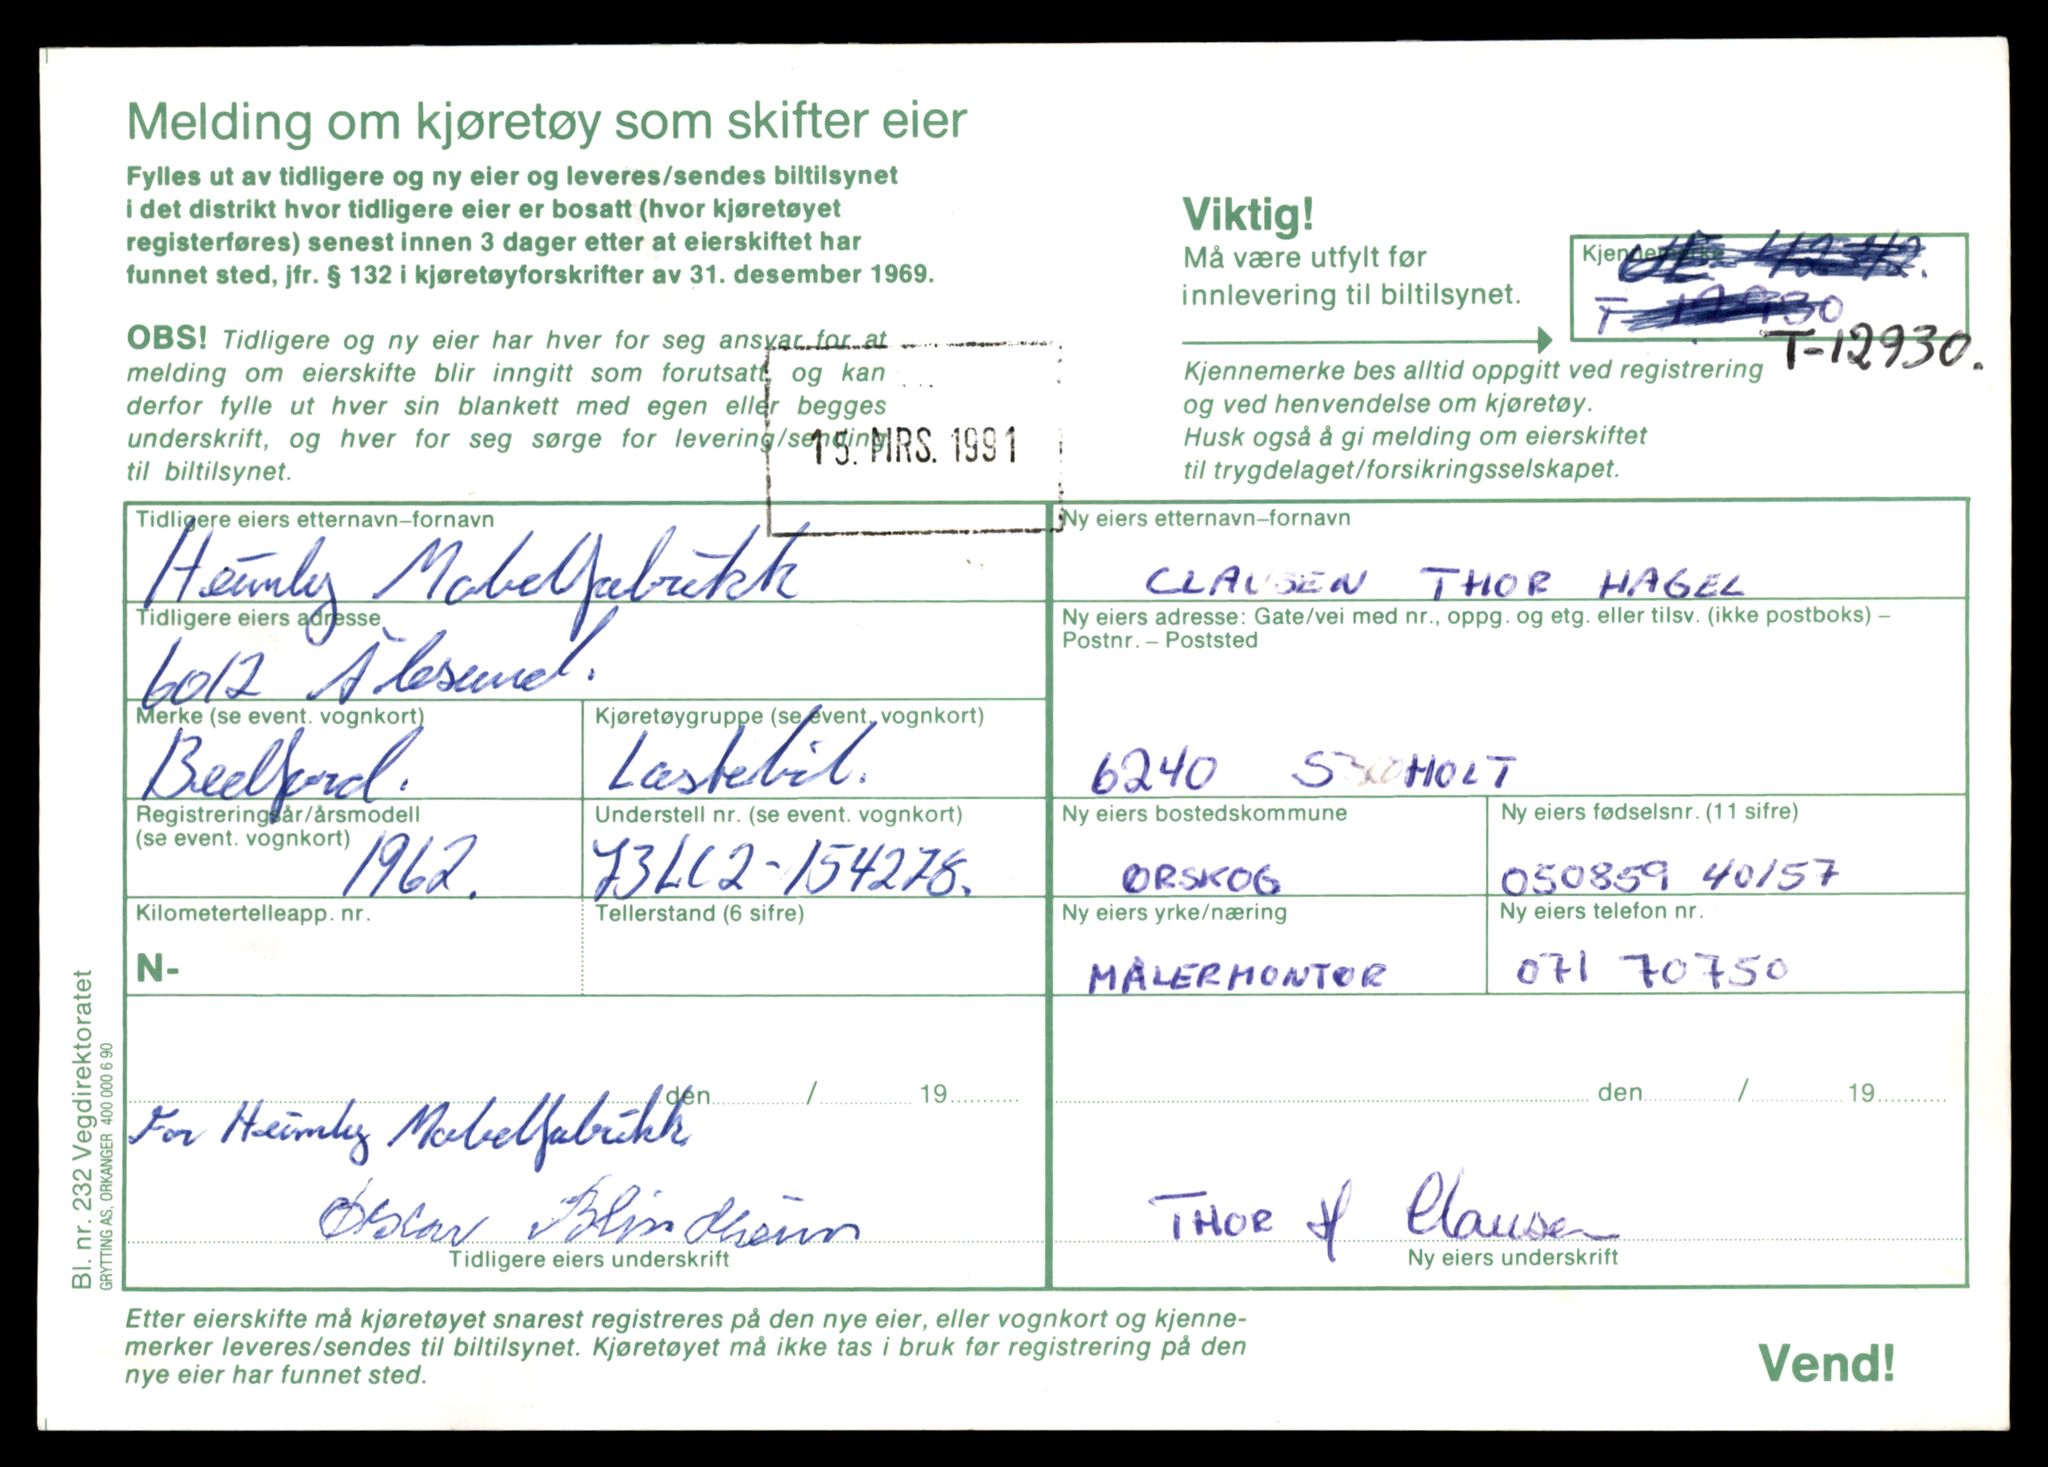 Melding om kjøretøy som skifter eier
Fylles ut av tidligere og ny eier og leveres/sendes biltilsynet
i det distrikt hvor tidligere eier er bosatt (hvor kjøretøyet
registerføres) senest innen 3 dager etter at eierskiftet har
funnet sted, jfr. § 132 i kjøretøyforskrifter av 31. desember 1969.
OBS! Tidligere og ny eier har hver for seg ansvar for at
melding om eierskifte blir inngitt som forutsatt, og kan
derfor fylle ut hver sin blankett med egen eller begges
underskrift, og hver for seg sørge for levering/sending
til biltilsynet.
15. MRS. 1991
Viktig!
Må være utfylt før
innlevering til biltilsynet.
Kjennemerke
T-12930.
Kjennemerke bes alltid oppgitt ved registrering
og ved henvendelse om kjøretøy.
Husk også å gi melding om eierskiftet
til trygdelaget/forsikringsselskapet.
Tidligere eiers etternavn–fornavn
Heimly Møbelfabrikk
Tidligere eiers adresse
6012 Ålesund.
Merke (se event. vognkort)
Bedford.
Kjøretøygruppe (se event. vognkort)
Lastebil.
Registreringsår/årsmodell
(se event. vognkort)
1962.
Understell nr. (se event. vognkort)
J3LC2-154278.
Kilometertelleapp. nr.
N-
Tellerstand (6 sifre)
den / 19
For Heimly Møbelfabrikk
Oskar Blindheim
Tidligere eiers underskrift
Ny eiers etternavn–fornavn
CLAUSEN THOR HAGEL
Ny eiers adresse: Gate/vei med nr., oppg. og etg. eller tilsv. (ikke postboks) –
Postnr. – Poststed
6240 SJØHOLT
Ny eiers bostedskommune
ØRSKOG
Ny eiers fødselsnr. (11 sifre)
050859 40157
Ny eiers yrke/næring
MÅLERMONTØR
Ny eiers telefon nr.
071 70750
den / 19
THOR H Clausen
Ny eiers underskrift
Etter eierskifte må kjøretøyet snarest registreres på den nye eier, eller vognkort og kjenne-
merker leveres/sendes til biltilsynet. Kjøretøyet må ikke tas i bruk før registrering på den
nye eier har funnet sted.
Vend!
Bl. nr. 232 Vegdirektoratet
GRYTTING AS, ORKANGER 400 000 6 90